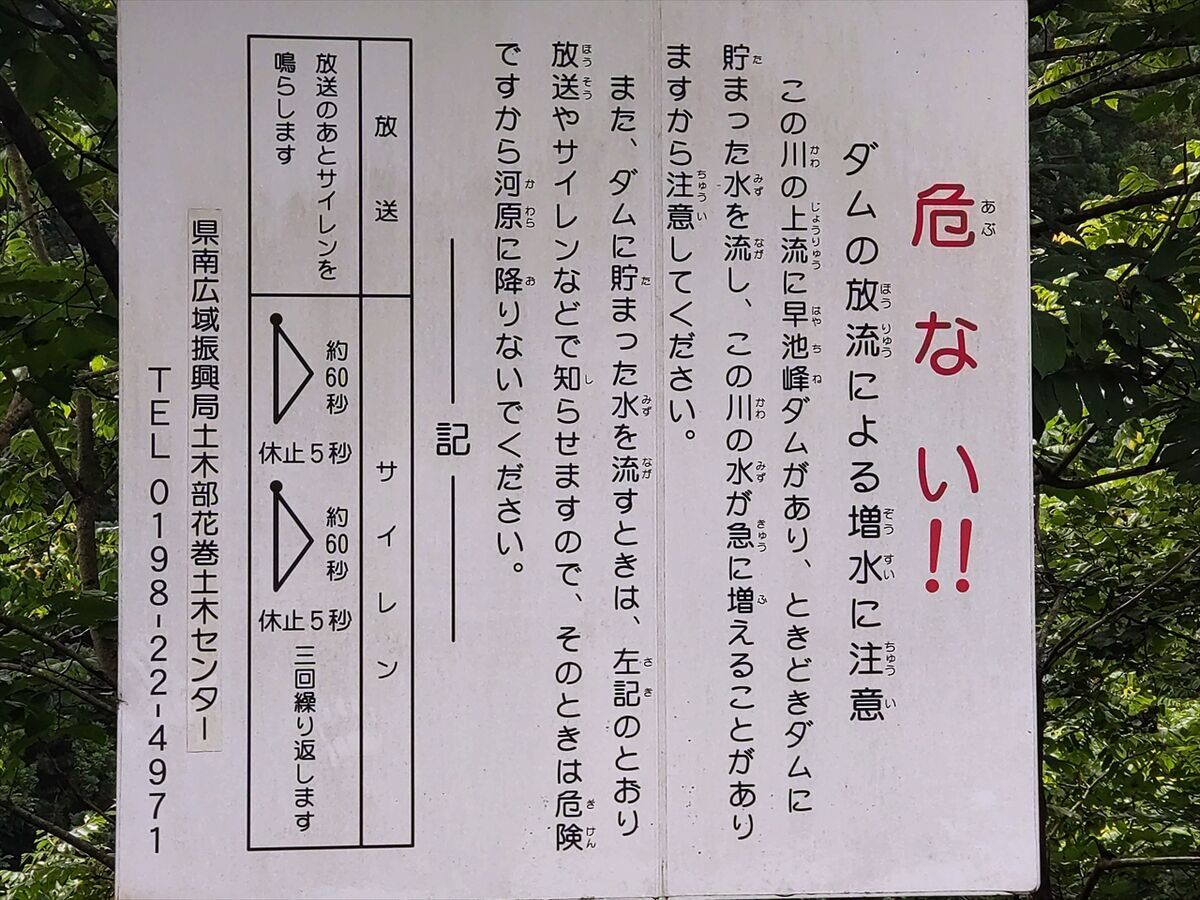 危ない!!
ダムの放流による増水に注意
この川の上流に早池峰ダムがあり、ときどきダムに
貯まった水を流し、この川の水が急に増えることがあり
ますから注意してください。
また、ダムに貯まった水を流すときは、左記のとおり
放送やサイレンなどで知らせますので、そのときは危険
ですから河原に降りないでください。
記
放送
サイレン
放送のあとサイレンを
鳴らします
約60秒
休止5秒
約60秒
休止5秒
三回繰り返します
県南広域振興局土木部花巻土木センター
TEL 0198-22-4971